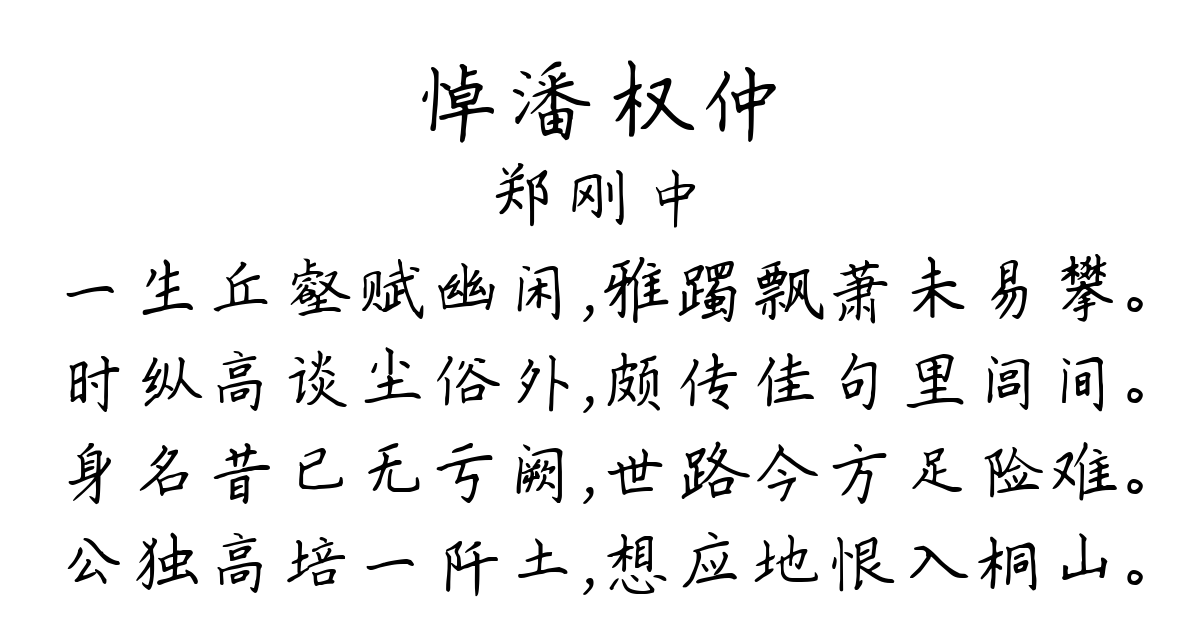 悼潘权仲
郑刚中
一生丘壑赋幽闲,雅躅飘萧未易攀。
时纵高谈尘俗外,颇传佳句里闾间。
身名昔已无亏阙,世路今方足险难。
公独高培一阡土,想应地恨入桐山。